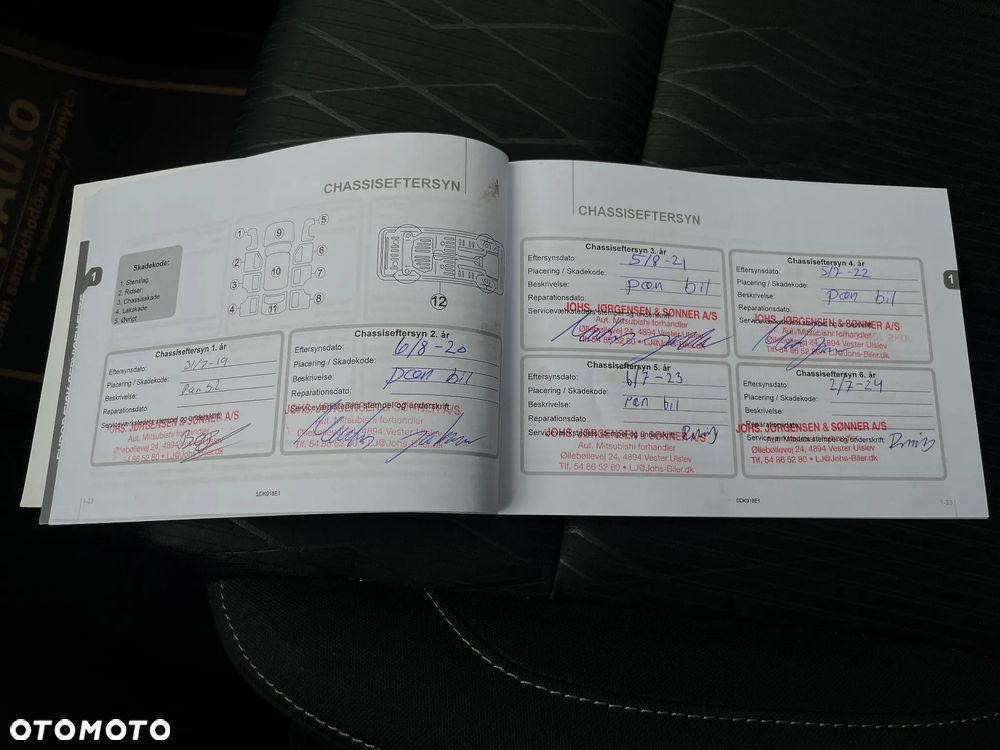 CHASSISEFTERSYN
Skadekode:
1. Stenslag
2. Ridser
3. Chassisskade
4. Lakskade
5. Øvrigt
1
1
2
3
4
9
10
11
5
6
7
8
12
Chassiseftersyn 1. år
Eftersynsdato: 31/7-19
Placering / Skadekode:
Beskrivelse: Pæn bil
Reparationsdato:
Serviceværkstedets stempel og underskrift:
JØRGENSEN & SØNNER A/S
Aut. Mitsubishi forhandler
Øllebøllevej 24, 4894 Vester Ulslev
Tlf. 54 86 52 80 • LJ@Johs-Biler.dk
Chassiseftersyn 2. år
Eftersynsdato: 6/8-20
Placering / Skadekode:
Beskrivelse: pæn bil
Reparationsdato:
Serviceværkstedets stempel og underskrift:
Aut. Mitsubishi forhandler
Øllebøllevej 24, 4894 Vester
Tlf. 54 86 52 80
SDK918E1
1-22
CHASSISEFTERSYN
Chassiseftersyn 3. år
Eftersynsdato: 5/8-21
Placering / Skadekode:
Beskrivelse: pæn bil
Reparationsdato:
Serviceværkstedets stempel og underskrift:
JOHS. JØRGENSEN & SØNNER A/S
Aut. Mitsubishi forhandler
Øllebøllevej 24, 4894 Vester Ulslev
Tlf. 54 86 52 80 • LJ@Johs-Biler.dk
Chassiseftersyn 4. år
Eftersynsdato: 5/7-22
Placering / Skadekode:
Beskrivelse: pæn bil
Reparationsdato:
Serviceværkstedets stempel og underskrift:
JOHS. JØRGENSEN & SØNNER A/S
Tlf. 54 86 52 80 • LJ@Johs-Biler.dk
1
Chassiseftersyn 5. år
Eftersynsdato: 6/7-23
Placering / Skadekode:
Beskrivelse: pæn bil
Reparationsdato:
JOHS. JØRGENSEN & SØNNER A/S
Aut. Mitsubishi forhandler
Øllebøllevej 24, 4894 Vester Ulslev
Tlf. 54 86 52 80 • LJ@Johs-Biler.dk
Chassiseftersyn 6. år
Eftersynsdato: 2/7-24
Placering / Skadekode:
Beskrivelse:
Reparationsdato:
JOHS. JØRGENSEN & SØNNER A/S
Øllebøllevej 24, 4894 Vester Ulslev
Tlf. 54 86 52 80 • LJ@Johs-Biler.dk
SDK918E1
1-23
OTOMOTO